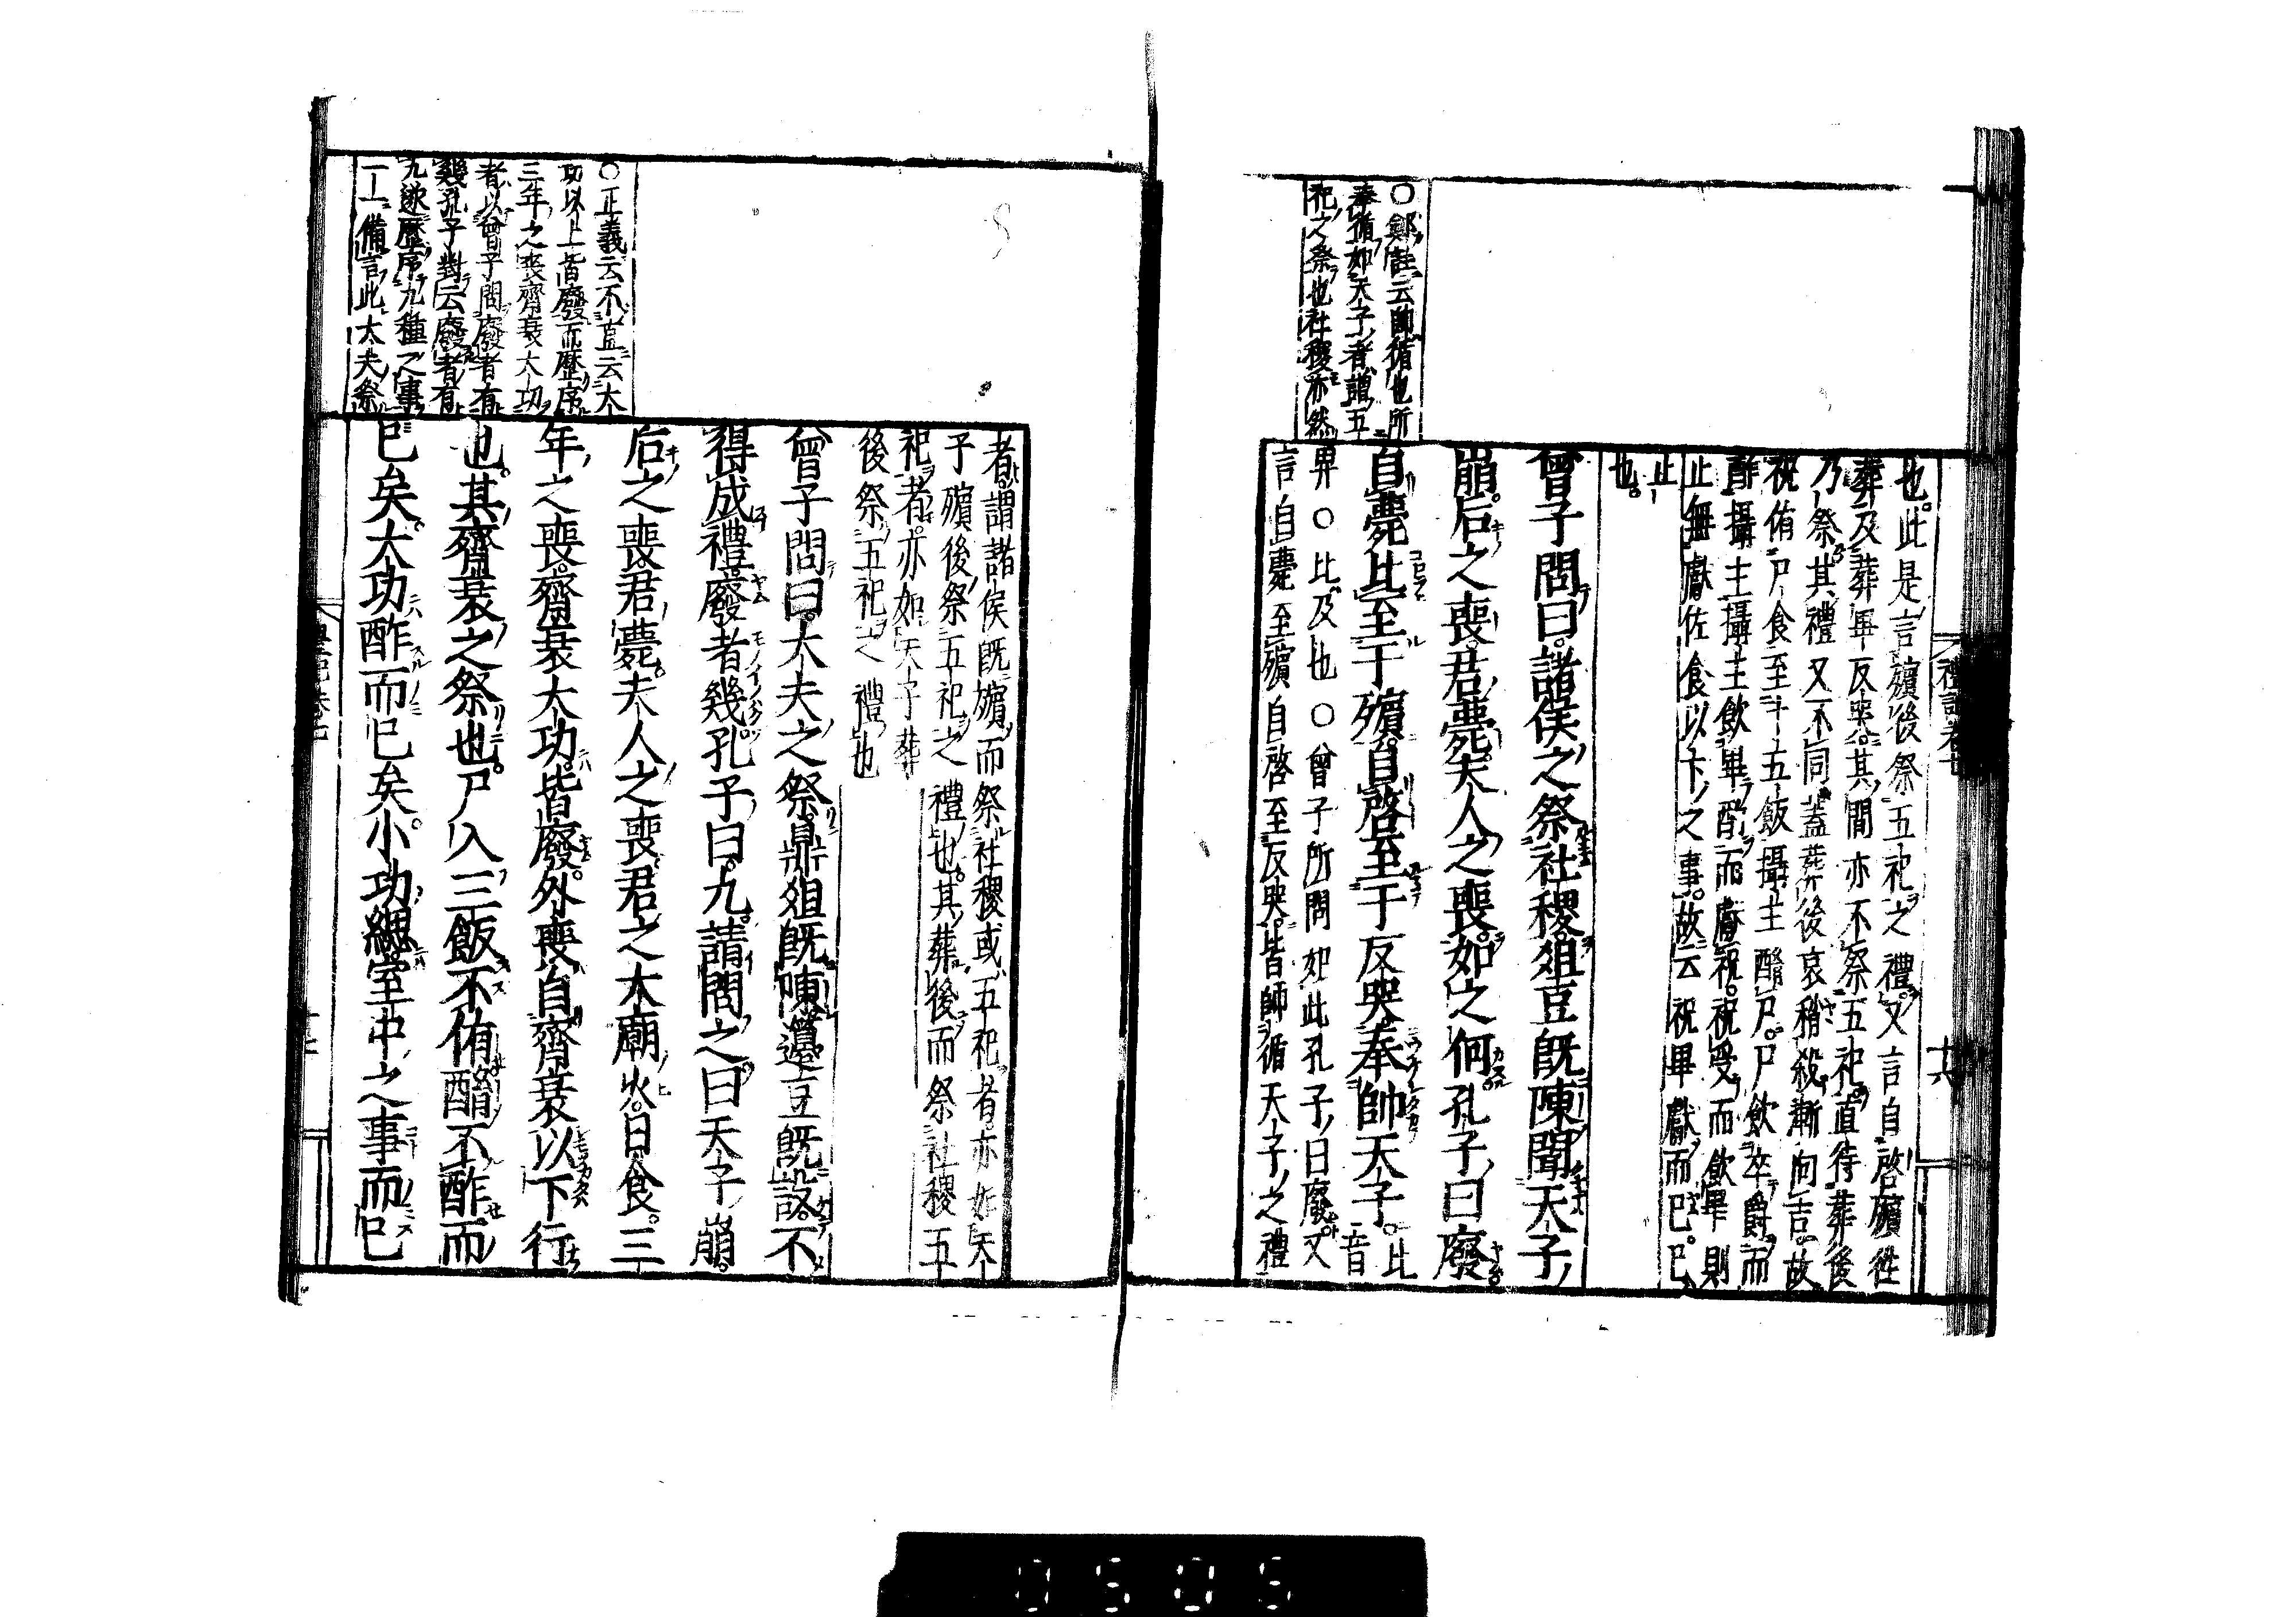 禮記卷七
十六
也。此是言殯後祭五祀之禮。又言自啓殯徃
葬及葬畢反哭。其間亦不祭五祀。直待葬後
乃祭其禮又不同。蓋葬後哀稍殺。漸向吉。故
祝侑尸食至十五飯攝主酳尸。尸飲卒爵。而
酢攝主攝主飲畢酌而獻祝。祝受而飲畢則
止無獻佐食以下之事。故云祝畢獻而已。已
止
也。
曾子問曰。諸侯之祭社稷。俎豆既陳聞天子
崩。后之喪。君薨。夫人之喪。如之何。孔子曰廢
〇鄭註云帥循也所
奉循如天子者謂五
祀之祭也社稷亦然
自薨比至于殯。自啓至于反哭。奉帥天子。比音
畀〇比及也〇曾子所問如此孔子曰廢。又
言自薨至殯自啓至反哭。皆帥循天子之禮
者。謂諸侯既殯而祭社稷或五祀者。亦如天
子殯後祭五祀之禮也。其葬後而祭社稷五
祀者。亦如天子葬
後祭五祀之禮也
曾子問曰。大夫之祭。鼎俎既陳。籩豆既設。不
得成禮。廢者幾。孔子曰。九。請問之。曰天子崩。
后之喪。君薨。夫人之喪。君之大廟火。日食。三
年之喪。齊衰。大功。皆廢。外喪自齊衰以下。行
也。其齊衰之祭也。尸入三飯不侑。酳不酢而
已矣。大功酢而已矣。小功緦室中之事而已
〇正義云不直云大
功以上皆廢而歷序
三年之喪齊衰大功
者以曾子問廢者有
幾孔子對云廢者有
九遂歷序九種之事
一一備言此大夫祭